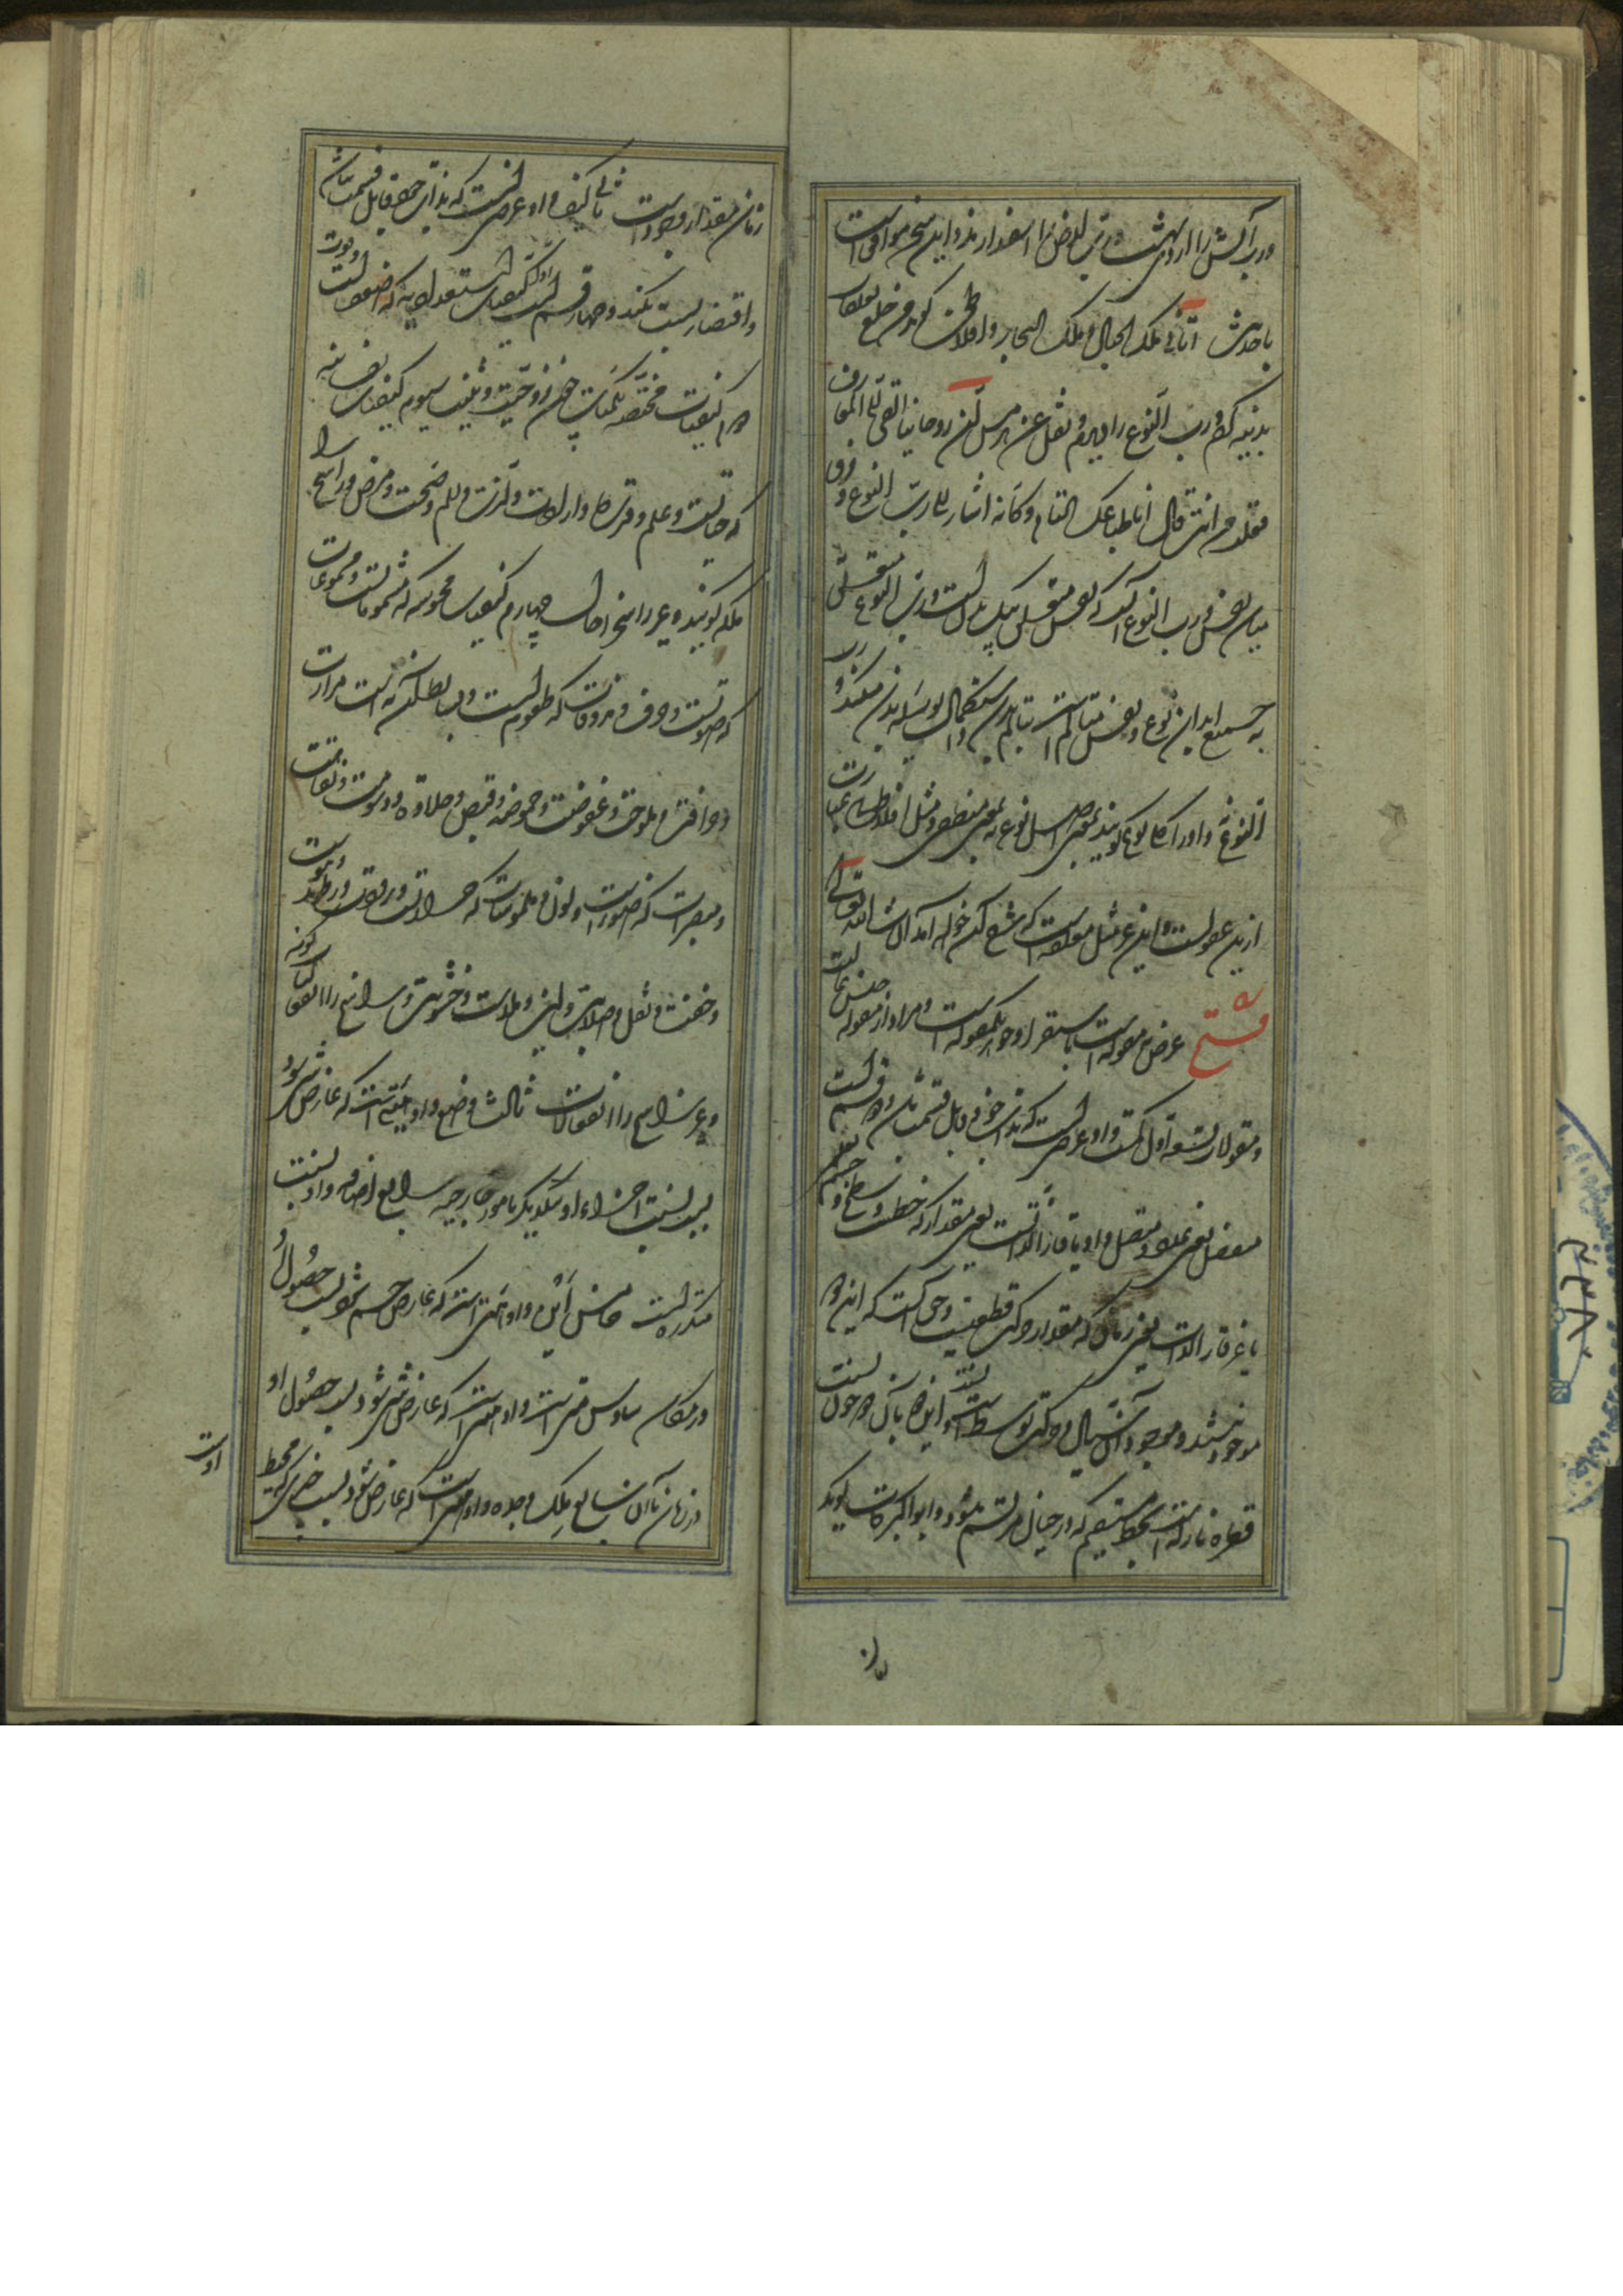 ورب آتش را اردیبهشت ورب الارض را اسفندارمذ و این سخن موافق است
با حدیث اتانی ملک الجبال و ملک البحار و افلاطون گوید من خلع
بدنیه کردم و رب النوع را دیدم و نقل عن هرمس ان روحانیا القی الی المعارف
فقلت من انت قال انا طباعک التام و کانه اشار الی رب النوع و فرق
میان نفس و رب النوع آنکه نفس متعلق بیک بدن است و رب النوع متعلق
به جمیع ابدان نوع و نفس متالم است بتالم بدن و استکمال بواسطه بدن میکند و رب
النوع و او را کلی نوع گویند بمعنی اصل نوع نه بمعنی منطقی و مثل افلاطونی عبارت
ازین عقولست و این غیر مثل معلقه است که شرح آن خواهد آمد ان شاء الله تعالی
فتح عرض نه مقوله است باستقرا و جوهر یک مقوله است و مراد از مقوله جنس عالیست
و مقولات تسعه اول کم و او عرضی است که بذات خود قابل قسمت باشد و دو قسم است
منفصل یعنی عدد و متصل و او یا قار الذات است یعنی مقدار که خط است و سطح و جسم تعلیمی
یا غیر قار الذات یعنی زمان که مقدار حرکت قطعیست و حق آنست که این هر دو
موجود نیستند و موجود آن سیال و حرکت توسطی است و نسبت این دو بآن هر دو چون نسبت
قطره نازله است بخط مستقیم که در خیال مرتسم میشود و ابو البرکات گوید
زمان مقدار وجود است ثانی کیف و او عرضی است که بذات خود قابل قسمت نباشد
و اقتضاء نسبت نکند و چهار قسم است اول کیفیات استعدادیه که ضعف است و قوت
دوم کیفیات مختصه بکمیات چون زوجیت و تثلیث سیوم کیفیات نفسانیه
که حیات است و علم و قدرت و ارادت و لذت و الم و صحت و مرض و راسخ را
ملکه گویند و غیر راسخ را حال چهارم کیفیات محسوسه که مشمومات است و مسموعات
که صوت است و حرف و مذوقات که طعوم است و بسایط آن نه است مرارت
و حرافت و ملوحت و عفوصت و حموضت و قبض و حلاوت و دسومت و تفاهت
و مبصرات که ضوء است و لون و ملموسات که حرارتست و برودت و رطوبت و یبوست
و خفت و ثقل و صلابت و لین و ملاست و خشونت و راسخ را انفعالیات گویند
و غیر راسخ را انفعالات ثالث وضع و او هیئتی است که عارض شی شود
بسبب نسبت اجزاء او بیکدیگر با امور خارجیه رابع اضافه و او نسبت
متکرره است خامس این و او هیئتی است که عارض جسم شود بسبب حصول او
در مکان سادس متی است و او هیئتی است که عارض شی شود بسبب حصول او
در زمان یا آن سابع ملک و جده و او هیئتی است که عارض شود بسبب چیزی که محیط
اوست